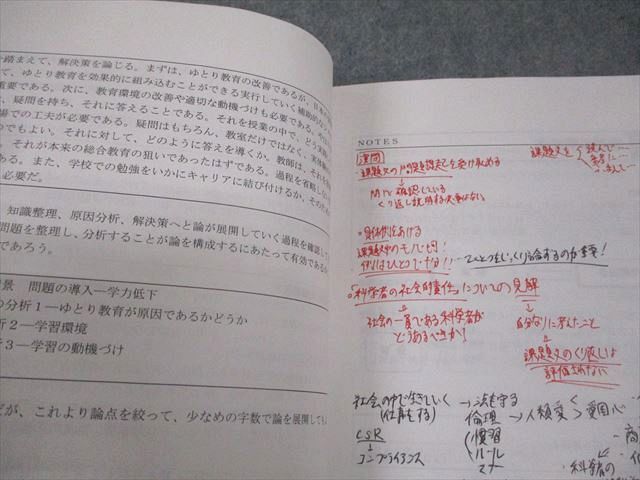 を踏まえて、解決策を論じる。まずは、ゆとり教育の改善であるが、日本の
て、ゆとり教育を効果的に組み込むことができる実行していく補助的な
重要である。次に、教育環境の改善や適切な動機づけも必要である。
、疑問を持ち、それに答えることである。それを授業の中で、どう実践
場での工夫が必要である。疑問はもちろん、教室だけではなく、実体
つでもよい。それに対して、どのように答えを導くか、教師は、それを
。それが本来の総合教育の狙いであったはずである。過程を省略しない
ある。また、学校での勉強をいかにキャリアに結び付けるか、その
必要だ。
知識整理、原因分析、解決策へと論が展開していく過程を確認して
問題を整理し、分析することが論を構成するにあたって有効である
であろう。
景 問題の導入―学力低下
の分析1―ゆとり教育が原因であるかどうか
析2―学習環境
析3―学習の動機づけ
だが、これより論点を絞って、少なめの字数で論を展開しても
NOTES
設問
課題文の問題提起を受け止める
課題文を
読んで…
問1で確認している
くり返し説明する必要はない
・具体例をあげる
課題文中のモノはダメ!
例はひとつで十分!!
ひとつをじっくり論ずるのが重要!
・「科学者の社会的責任」についての見解
社会の一員である科学者が
どうあるべきか?
自分なりに考えたこと
課題文のくり返しは
評価されない
社会の中で生きていく
(仕事をする)
→法を守る
倫理
→人類愛
愛国心
慣習
ルール
マナー
CSR
コンプライアンス
科学者の